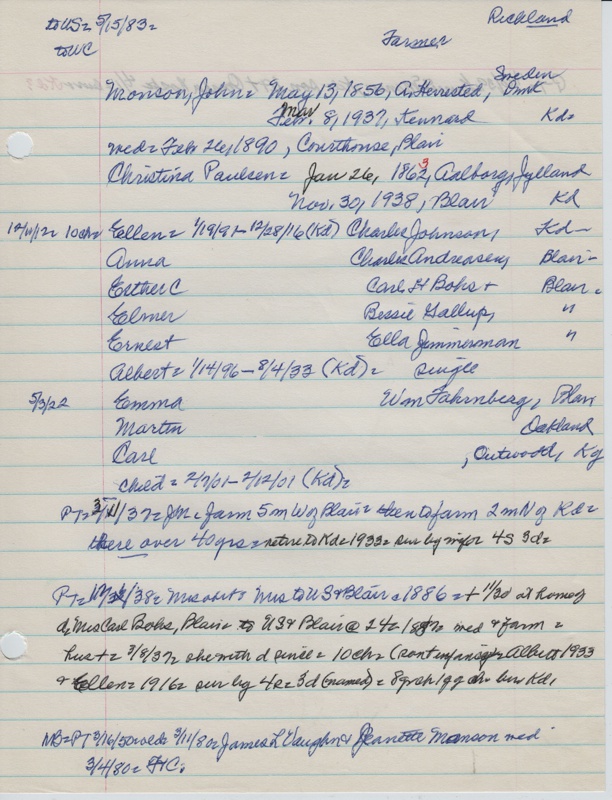 to US = 5/15/83 = Richland
to WC Farmer
Sweden
Monson, John = May 13, 1856, A. Herrested, Dmk
Mar
8, 1937, Kennard Kd =
med = Feb 26, 1890, Courthouse, Blair
Christina Paulsen = Jan 26, 1862, 3 Aalborg, Jylland
Nov. 30, 1938, Blair Kd
12/11/12 = 10 ch = Ellen = 1/19/91 - 12/28/16 (Kd) Charles Johnson, Kd -
Anna Charlie Andreasen, Blair -
Esther C Carl H Bohs + Blair =
Elmer Bessie Gallup, "
Ernest Ella Jimmerman "
Albert = 1/14/96 - 8/4/33 (Kd) = single
5/3/22 Emma Wm Fahrnberg, Blair
Martin Oakland
Carl , Outwood, Ky
child = 2/7/01 - 2/12/01 (Kd) =
PT = /37 = JM = farm 5 m W of Blair = then to farm 2 m N of Kd =
there over 40 yrs = retire to Kd = 1933 = sur by wife 4 S 3 d =
PT = /38 = Mrs to US + Blair = 1886 = + 11/30 at home of
d, Mrs Carl Bohs, Blair = to US + Blair @ 24 = med + farm =
hus + = 3/8/37 = she with d since = 10 ch = Albert 1933
+ Ellen = 1916 = sur by 4 s = 3 d (named) = 8 gch 1 ggch = bur Kd,
NB = PT 3/16/80 3/11/80 = James L Vaughn + Jeanette Monson med
3/4/80 =